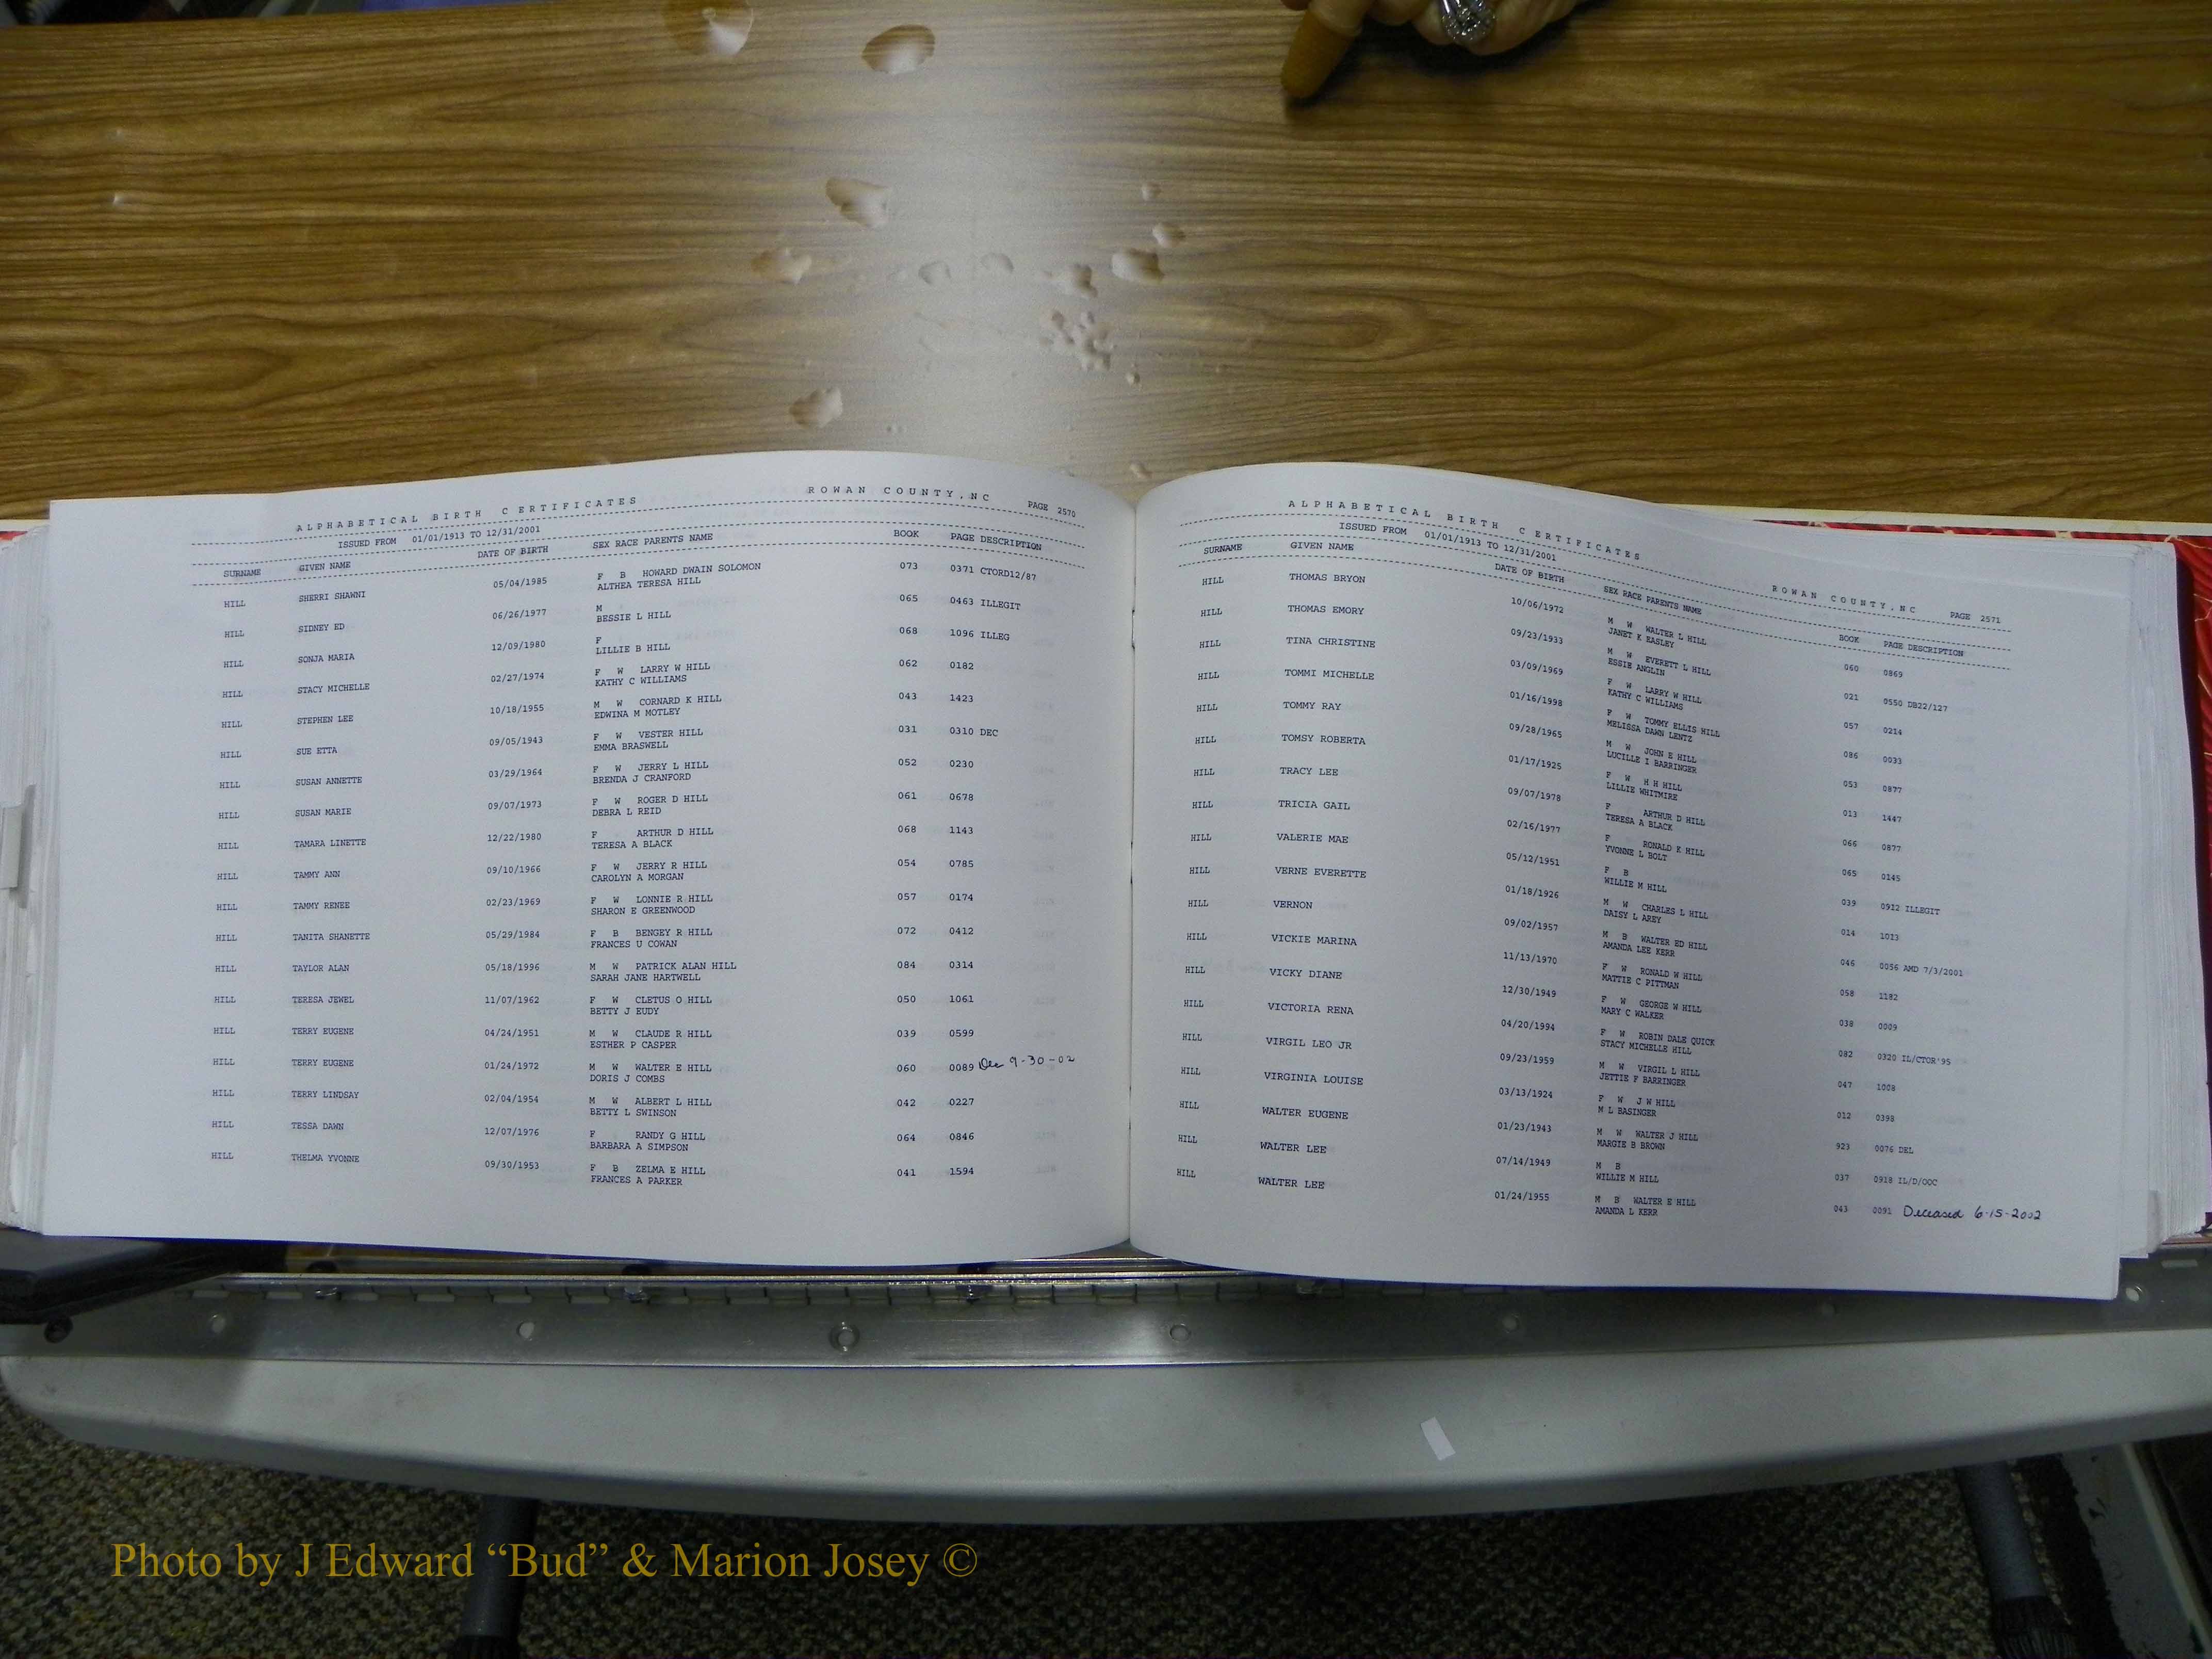 ALPHABETICAL BIRTH CERTIFICATES ROWAN COUNTY,NC PAGE 2570
ISSUED FROM 01/01/1913 TO 12/31/2001
SURNAME GIVEN NAME DATE OF BIRTH SEX RACE PARENTS NAME BOOK PAGE DESCRIPTION
HILL SHERRI SHAWNI 05/04/1985 F B HOWARD DWAIN SOLOMON 073 0371 CTORD12/87
ALTHEA TERESA HILL
HILL SIDNEY ED 06/26/1977 M 065 0463 ILLEGIT
BESSIE L HILL
HILL SONJA MARIA 12/09/1980 F 068 1096 ILLEG
LILLIE B HILL
HILL STACY MICHELLE 02/27/1974 F W LARRY W HILL 062 0182
KATHY C WILLIAMS
HILL STEPHEN LEE 10/18/1955 M W CORNARD K HILL 043 1423
EDWINA M MOTLEY
HILL SUE ETTA 09/05/1943 F W VESTER HILL 031 0310 DEC
EMMA BRASWELL
HILL SUSAN ANNETTE 03/29/1964 F W JERRY L HILL 052 0230
BRENDA J CRANFORD
HILL SUSAN MARIE 09/07/1973 F W ROGER D HILL 061 0678
DEBRA L REID
HILL TAMARA LINETTE 12/22/1980 F ARTHUR D HILL 068 1143
TERESA A BLACK
HILL TAMMY ANN 09/10/1966 F W JERRY R HILL 054 0785
CAROLYN A MORGAN
HILL TAMMY RENEE 02/23/1969 F W LONNIE R HILL 057 0174
SHARON E GREENWOOD
HILL TANITA SHANETTE 05/29/1984 F B BENGEY R HILL 072 0412
FRANCES U COWAN
HILL TAYLOR ALAN 05/18/1996 M W PATRICK ALAN HILL 084 0314
SARAH JANE HARTWELL
HILL TERESA JEWEL 11/07/1962 F W CLETUS O HILL 050 1061
BETTY J EUDY
HILL TERRY EUGENE 04/24/1951 M W CLAUDE R HILL 039 0599
ESTHER P CASPER
HILL TERRY EUGENE 01/24/1972 M W WALTER E HILL 060 0089 Dec 9-30-02
DORIS J COMBS
HILL TERRY LINDSAY 02/04/1954 M W ALBERT L HILL 042 0227
BETTY L SWINSON
HILL TESSA DAWN 12/07/1976 F RANDY G HILL 064 0846
BARBARA A SIMPSON
HILL THELMA YVONNE 09/30/1953 F B ZELMA E HILL 041 1594
FRANCES A PARKER
ALPHABETICAL BIRTH CERTIFICATES ROWAN COUNTY,NC PAGE 2571
ISSUED FROM 01/01/1913 TO 12/31/2001
SURNAME GIVEN NAME DATE OF BIRTH SEX RACE PARENTS NAME BOOK PAGE DESCRIPTION
HILL THOMAS BRYON 10/06/1972 M W WALTER L HILL 060 0869
JANET K EASLEY
HILL THOMAS EMORY 09/23/1933 M W EVERETT L HILL 021 0550 DB22/127
ESSIE ANGLIN
HILL TINA CHRISTINE 03/09/1969 F W LARRY W HILL 057 0214
KATHY C WILLIAMS
HILL TOMMI MICHELLE 01/16/1998 F W TOMMY ELLIS HILL 086 0033
MELISSA DAWN LENTZ
HILL TOMMY RAY 09/28/1965 M W JOHN E HILL 053 0877
LUCILLE I BARRINGER
HILL TOMSY ROBERTA 01/17/1925 F W H H HILL 013 1447
LILLIE WHITMIRE
HILL TRACY LEE 09/07/1978 F ARTHUR D HILL 066 0877
TERESA A BLACK
HILL TRICIA GAIL 02/16/1977 F RONALD K HILL 065 0145
YVONNE L BOLT
HILL VALERIE MAE 05/12/1951 F B 039 0912 ILLEGIT
WILLIE M HILL
HILL VERNE EVERETTE 01/18/1926 M W CHARLES L HILL 014 1013
DAISY L AREY
HILL VERNON 09/02/1957 M B WALTER ED HILL 046 0056 AMD 7/3/2001
AMANDA LEE KERR
HILL VICKIE MARINA 11/13/1970 F W RONALD W HILL 058 1182
MATTIE C PITTMAN
HILL VICKY DIANE 12/30/1949 F W GEORGE W HILL 038 0009
MARY C WALKER
HILL VICTORIA RENA 04/20/1994 F W ROBIN DALE QUICK 082 0320 IL/CTOR'95
STACY MICHELLE HILL
HILL VIRGIL LEO JR 09/23/1959 M W VIRGIL L HILL 047 1008
JETTIE F BARRINGER
HILL VIRGINIA LOUISE 03/13/1924 F W J W HILL 012 0398
M L BASINGER
HILL WALTER EUGENE 01/23/1943 M W WALTER J HILL 923 0076 DEL
MARGIE B BROWN
HILL WALTER LEE 07/14/1949 M B 037 0918 IL/D/OOC
WILLIE M HILL
HILL WALTER LEE 01/24/1955 M B WALTER E HILL 043 0091 Deceased 6-15-2002
AMANDA L KERR
Photo by J Edward “Bud” & Marion Josey ©